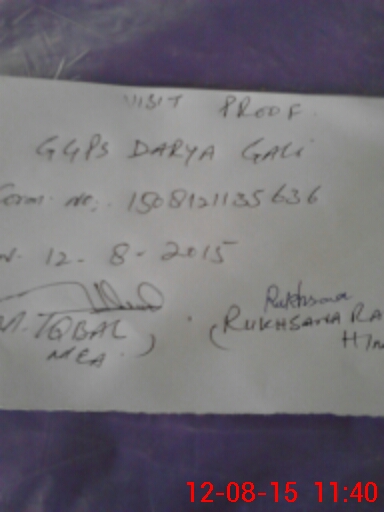 VISIT PROOF.
GGPS DARYA GALI
Form No: 1508121135636
12-8-2015
Rukhsana
M. IQBAL
(RUKHSANA RA
MEA.)
12-08-15 11:40